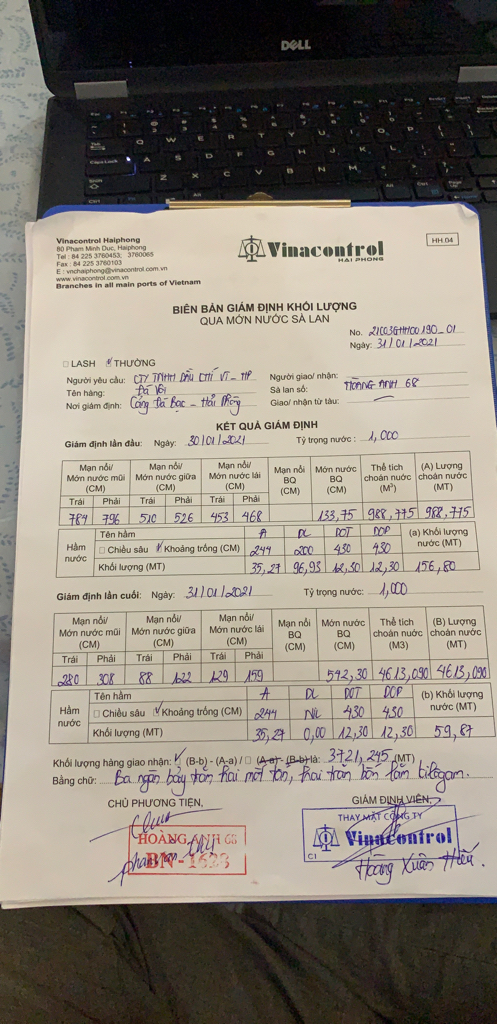 DELL
Vinacontrol Haiphong
80 Pham Minh Duc, Haiphong
Tel : 84 225 3760453; 3760065
Fax : 84 225 3760103
E : vnchaiphong@vinacontrol.com.vn
www.vinacontrol.com.vn
Branches in all main ports of Vietnam
Vinacontrol
HAI PHONG
HH.04
BIÊN BẢN GIÁM ĐỊNH KHỐI LƯỢNG
QUA MỚN NƯỚC SÀ LAN
No. 21C03GHH00190_01
Ngày: 31/01/2021
LASH THƯỜNG
Người yêu cầu: CTY TNHH DẦU KHÍ VT_HP Người giao/ nhận:
Tên hàng: Đá Vôi Sà lan số: HOÀNG ANH 68
Nơi giám định: Cảng Đá Bạc - Hải Phòng Giao/ nhận từ tàu:
KẾT QUẢ GIÁM ĐỊNH
Giám định lần đầu: Ngày: 30/01/2021 Tỷ trọng nước : 1,000
Mạn nổi/ Mớn nước mũi (CM) Mạn nổi/ Mớn nước giữa (CM) Mạn nổi/ Mớn nước lái (CM) Mạn nổi BQ (CM) Mớn nước BQ (CM) Thể tích choán nước (M³) (A) Lượng choán nước (MT)
Trái Phải Trái Phải Trái Phải
784 796 510 526 453 468 133,75 988,775 988,775
Hầm nước Tên hầm A DL DOT DOP (a) Khối lượng nước (MT)
Chiều sâu Khoảng trống (CM) 244 200 430 430
Khối lượng (MT) 35,27 96,93 12,30 12,30 156,80
Giám định lần cuối: Ngày: 31/01/2021 Tỷ trọng nước: 1,000
Mạn nổi/ Mớn nước mũi (CM) Mạn nổi/ Mớn nước giữa (CM) Mạn nổi/ Mớn nước lái (CM) Mạn nổi BQ (CM) Mớn nước BQ (CM) Thể tích choán nước (M3) (B) Lượng choán nước (MT)
Trái Phải Trái Phải Trái Phải
280 308 88 122 129 159 542,30 4613,090 4613,090
Hầm nước Tên hầm A DL DOT DOP (b) Khối lượng nước (MT)
Chiều sâu Khoảng trống (CM) 244 NIL 430 430
Khối lượng (MT) 35,27 0,00 12,30 12,30 59,87
Khối lượng hàng giao nhận: (B-b) - (A-a) / (A-a) - (B-b) là: 3721,245 (MT)
Bằng chữ: Ba ngàn bảy trăm hai mốt tấn, hai trăm bốn lăm kilogam.
CHỦ PHƯƠNG TIỆN, GIÁM ĐỊNH VIÊN,
HOÀNG ANH 68
BN-1628
THAY MẶT CÔNG TY
Vinacontrol
C1
Hoàng Xuân Hiếu